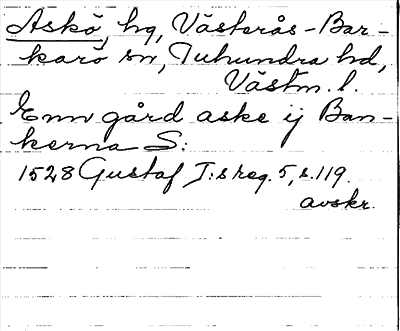 Askö, hg, Västerås-Bar-
karö sn, Tuhundra hd,
Västm. l.
Enn gård aske ij Ban-
kerna S:
1528 Gustaf I:s reg. 5, s. 119.
avskr.